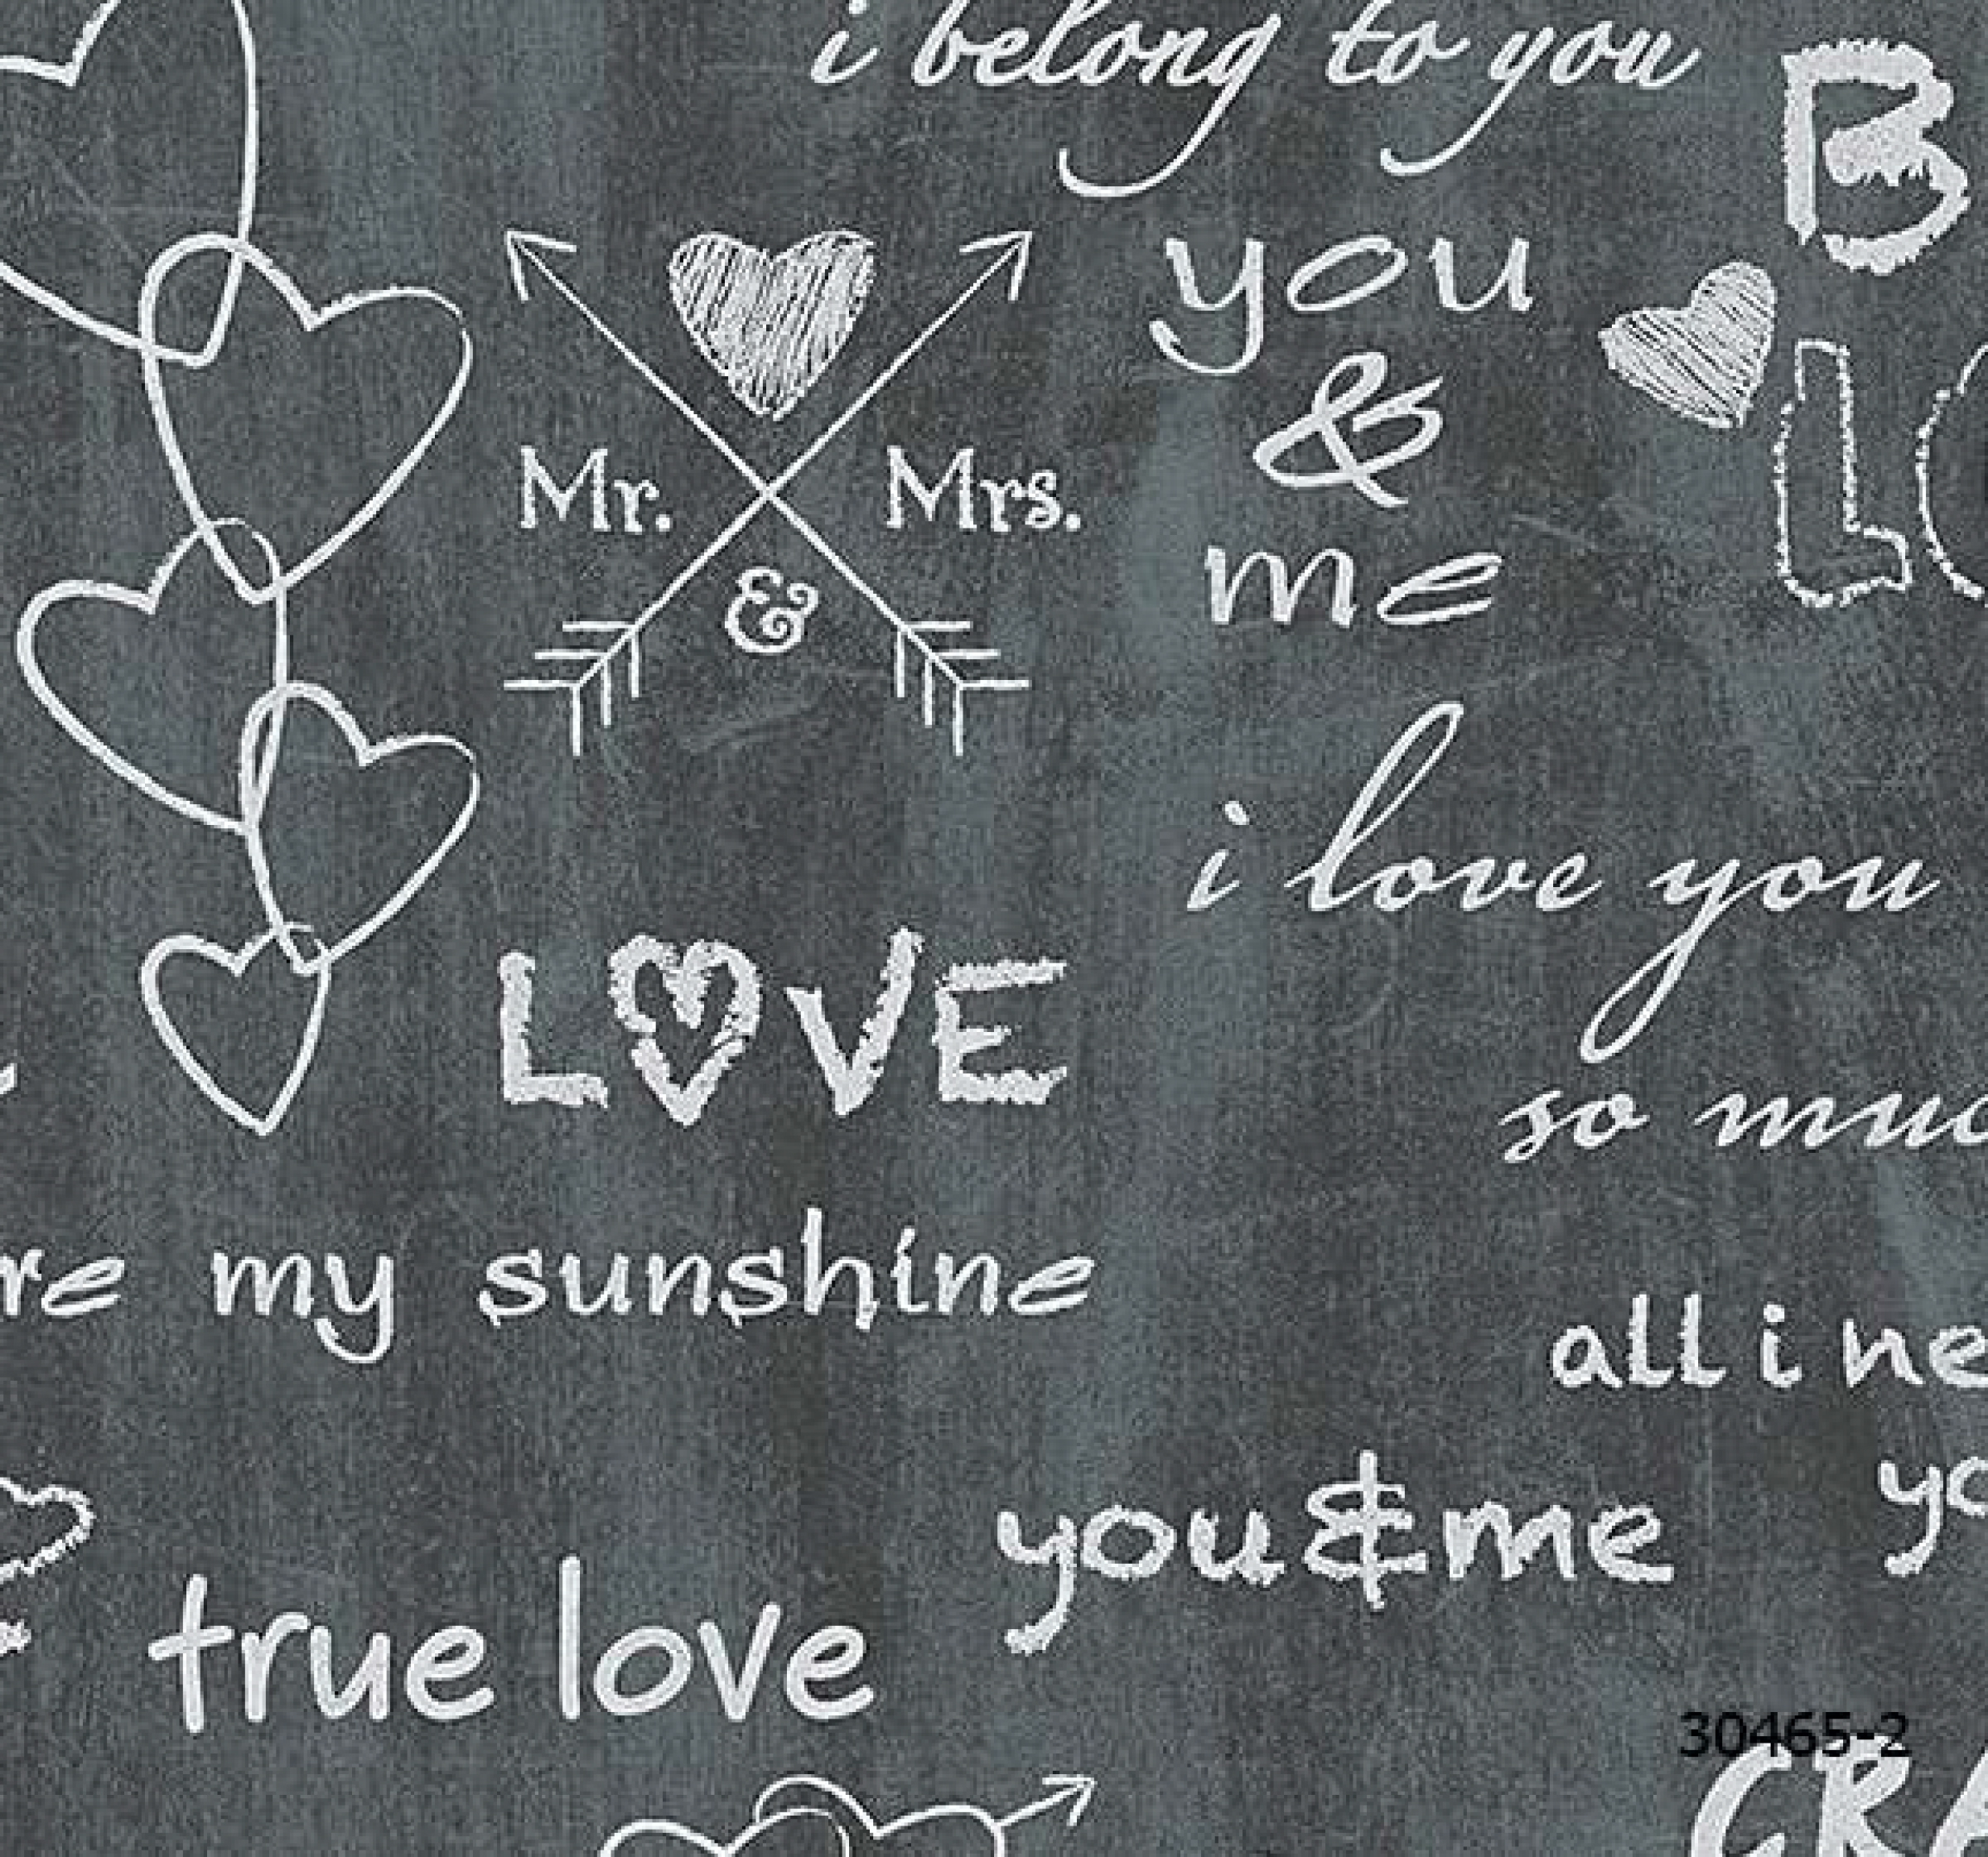 i belong to you
B
you
&
me
Mr. Mrs.
&
L
i love you
LOVE
so muc
re my sunshine
all i ne
yo
you & me
true love
30465-2
CRA